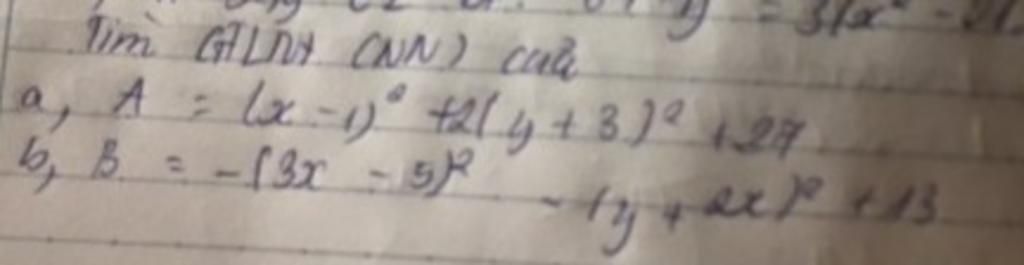 y = 3(x² -
Tìm GTLN (NN) của
a, A = (x - 1)² + 2(y + 3)² + 27
b, B = -(3x - 5)² - (y + 2x)² + 13